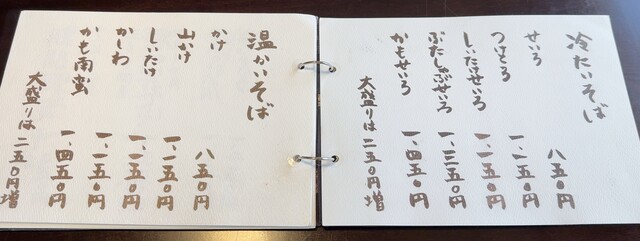 冷たいそば
せいろ 八五〇円
つけとろ 一、一五〇円
しいたけせいろ 一、一五〇円
ぶたしゃぶせいろ 一、三五〇円
かもせいろ 一、四五〇円
大盛りは二五〇円増
温かいそば
かけ 八五〇円
山かけ 一、一五〇円
しいたけ 一、一五〇円
かしわ 一、一五〇円
かも南蛮 一、四五〇円
大盛りは二五〇円増